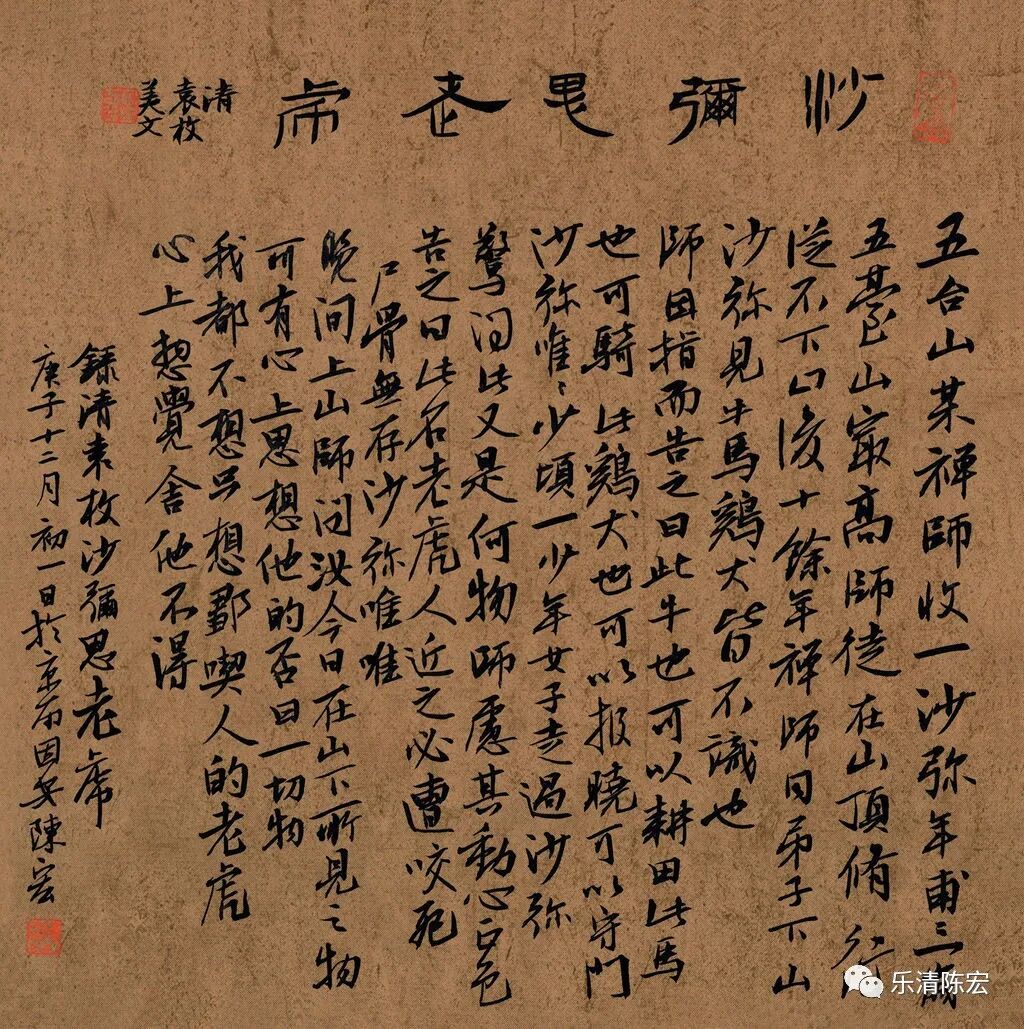 沙彌思老虎
清
袁枚
美文
五台山某禅師收一沙弥年甫三歲
五臺山最高師徒在山頂脩行
從不下山後十餘年禅師同弟子下山
沙弥見牛馬鷄犬皆不識也
師因指而告之曰此牛也可以耕田此馬
也可騎此鷄犬也可以报曉可以守門
沙弥唯〻少頃一少年女子走過沙弥
驚问此又是何物師慮其動心正色
告之曰此名老虎人近之必遭咬死
尸骨無存沙弥唯唯
晚间上山師问汝今日在山下所見之物
可有心上思想他的否曰一切物
我都不想只想那喫人的老虎
心上想覺舍他不得
錄清袁枚沙彌思老虎
庚子十二月初一日於京南固安陳宏
乐清陈宏